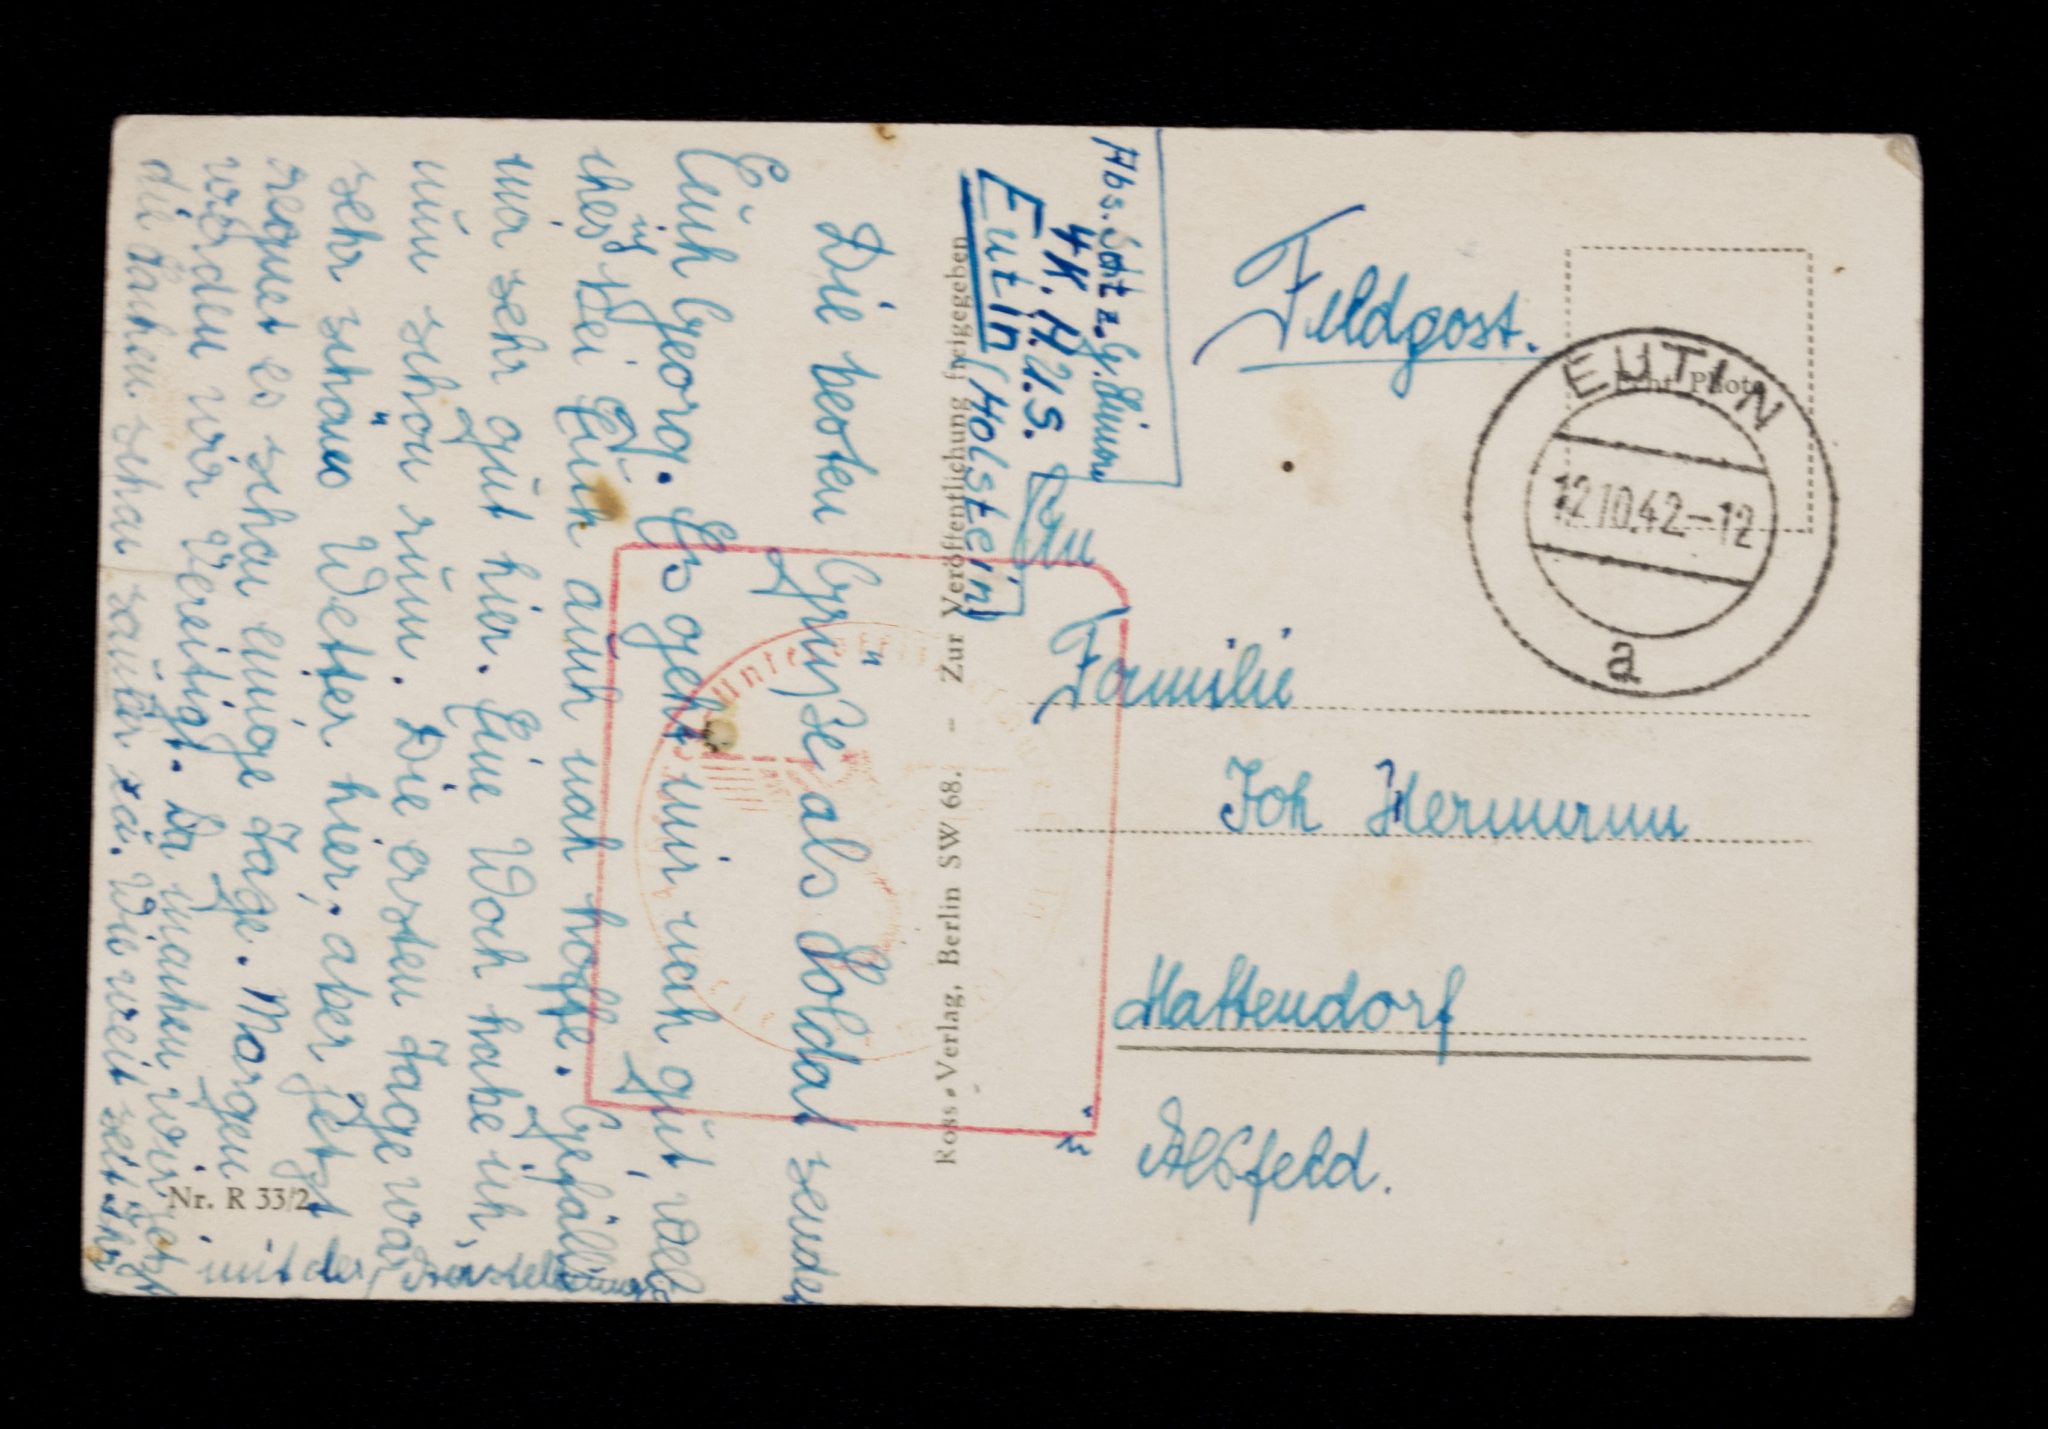 Die besten Grüße als Soldat sendet
Euch Georg. Es geht mir noch gut, wel
ches ich bei Euch auch noch hoffe. Gefallen
mir sehr gut hier. Eine Woch habe ich,
nun schon rum. Die ersten Tage war
sehr schön Wetter hier, aber jetzt
regnet es schon einige Tage. Morgen
werden wir Vereitigt. Da machen wir jetzt
die Sachen schon sauber zu. Wie weit seit Ihr
mit der
Nr. R 33/2
Ross-Verlag, Berlin SW 68. – Zur Veröffentlichung freigegeben
Abs. Sch[tz]. G.
4K. A.U.S.
Eutin (Holstein)
Feldpost.
Echt Photo
EUTIN
12.10.42–12
a
An
Familie
Joh Hermann
Hattendorf
Alsfeld.